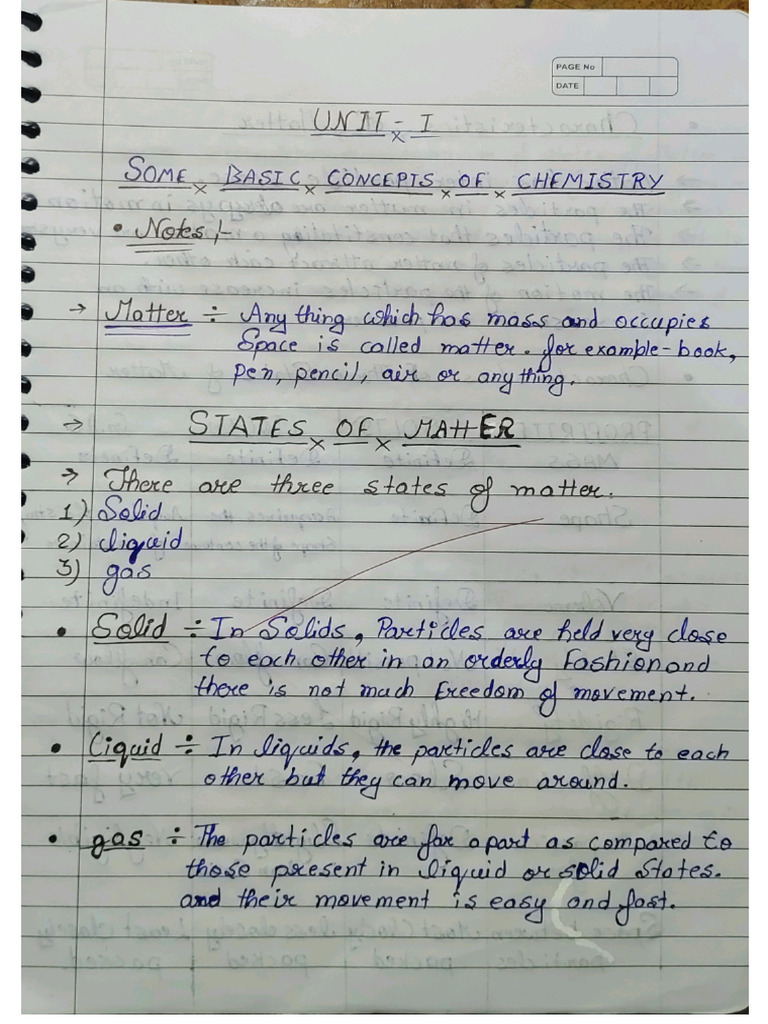 PAGE No
DATE
UNIT - I
SOME × BASIC × CONCEPTS × OF × CHEMISTRY
• Notes ;-
→ Matter ÷ Any thing which has mass and occupies
Space is called matter. for example - book,
pen, pencil, air or any thing.
→ STATES × OF × MATTER
→ There are three states of matter.
1) Solid
2) liquid
3) gas
• Solid ÷ In Solids, Particles are held very close
to each other in an orderly Fashion and
there is not much Freedom of movement.
• Liquid ÷ In liquids, the particles are close to each
other but they can move around.
• gas ÷ The particles are far apart as compared to
those present in liquid or solid States.
and their movement is easy and fast.